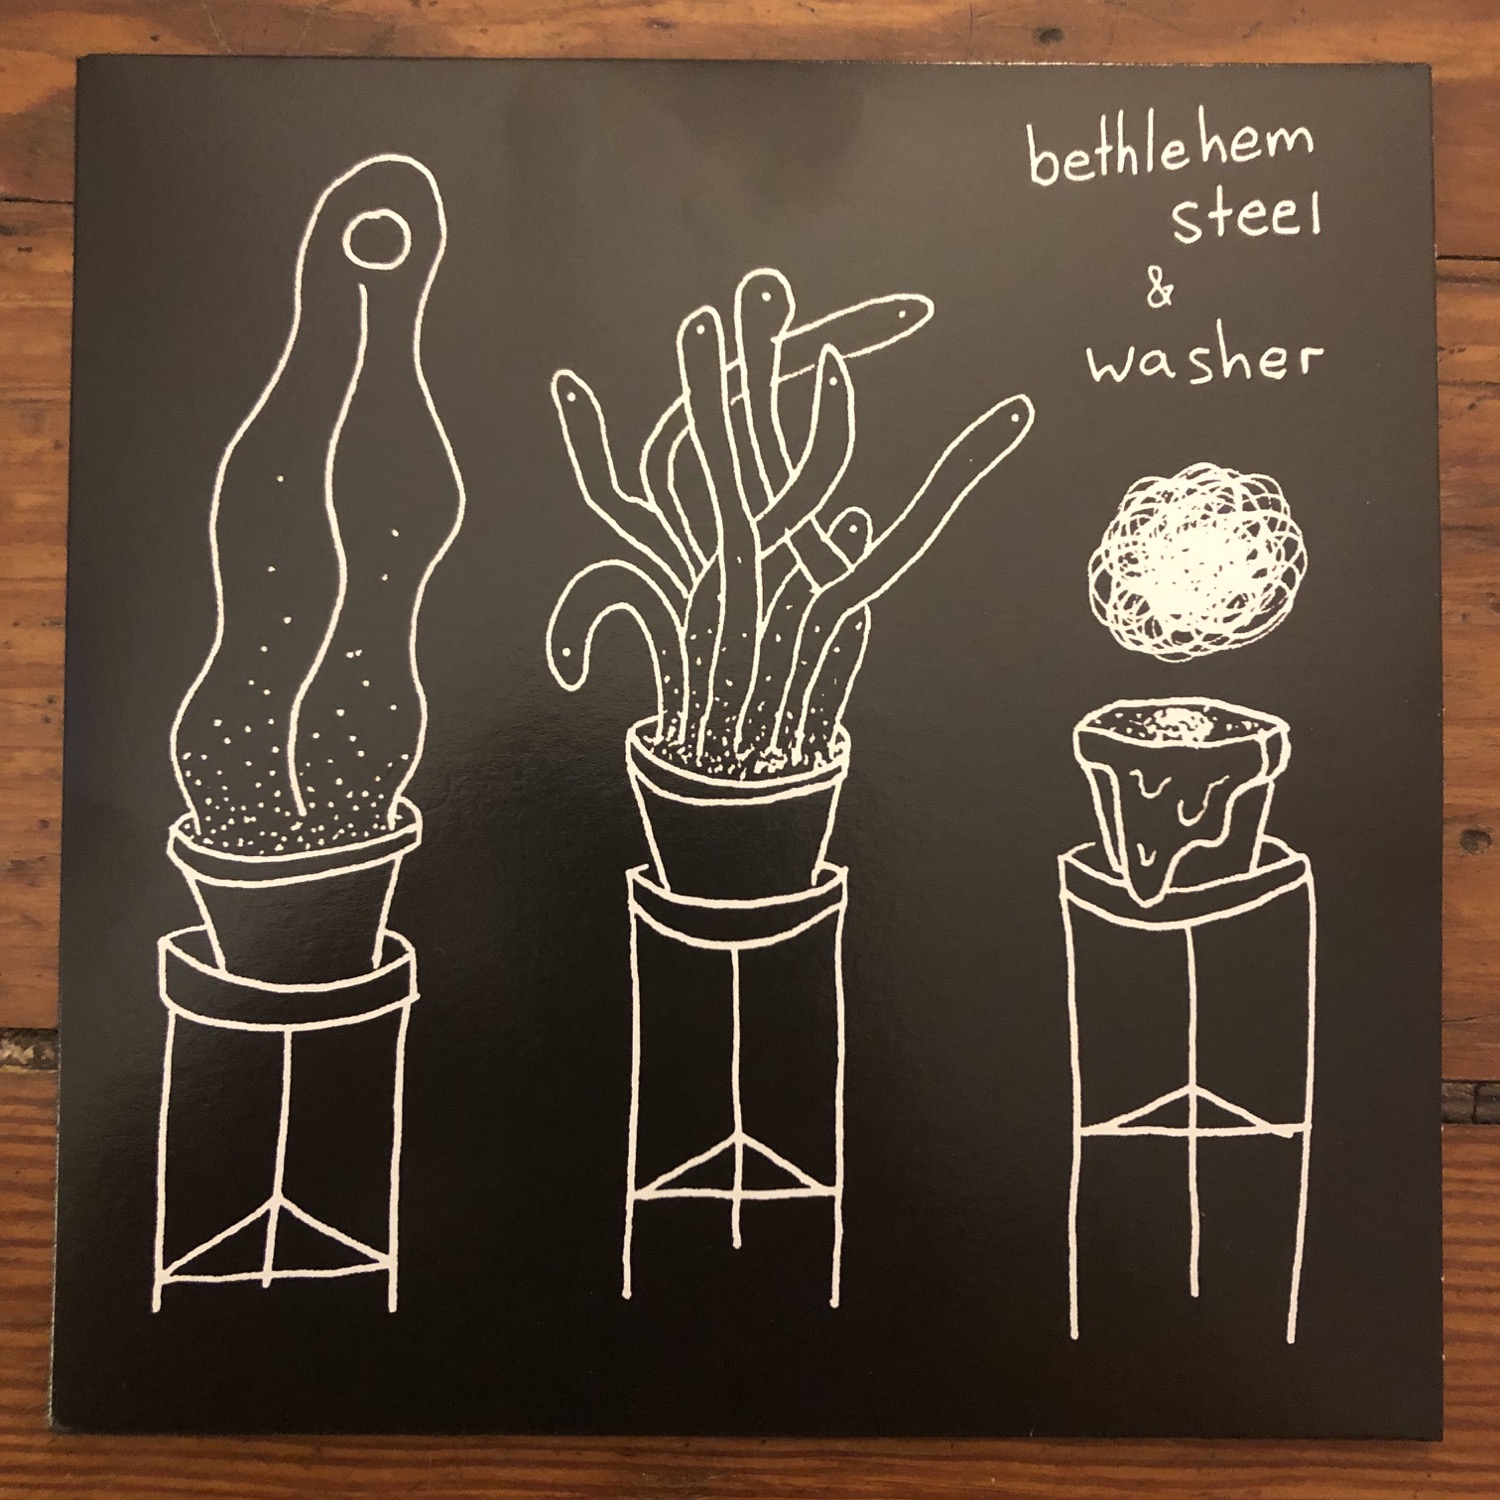 bethlehem
steel
&
washer